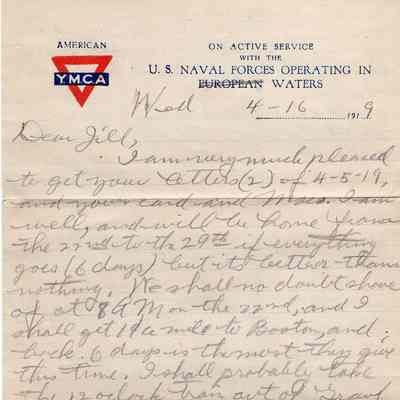 AMERICAN
YMCA
ON ACTIVE SERVICE
WITH THE
U. S. NAVAL FORCES OPERATING IN
EUROPEAN WATERS
Wed 4-16 1919
Dear Jill,
I am very much pleased
to get your letters (2) of 4-5-19,
and your card and I am
well, and will be home from
the 22nd to the 29th if everything
goes (6 days) but its better than
nothing. We shall no doubt shove
off at 8 AM on the 22nd, and I
shall get mile to Boston, and
back. 6 days is the most they give
this time. I shall probably take
the 12 oclock train out of